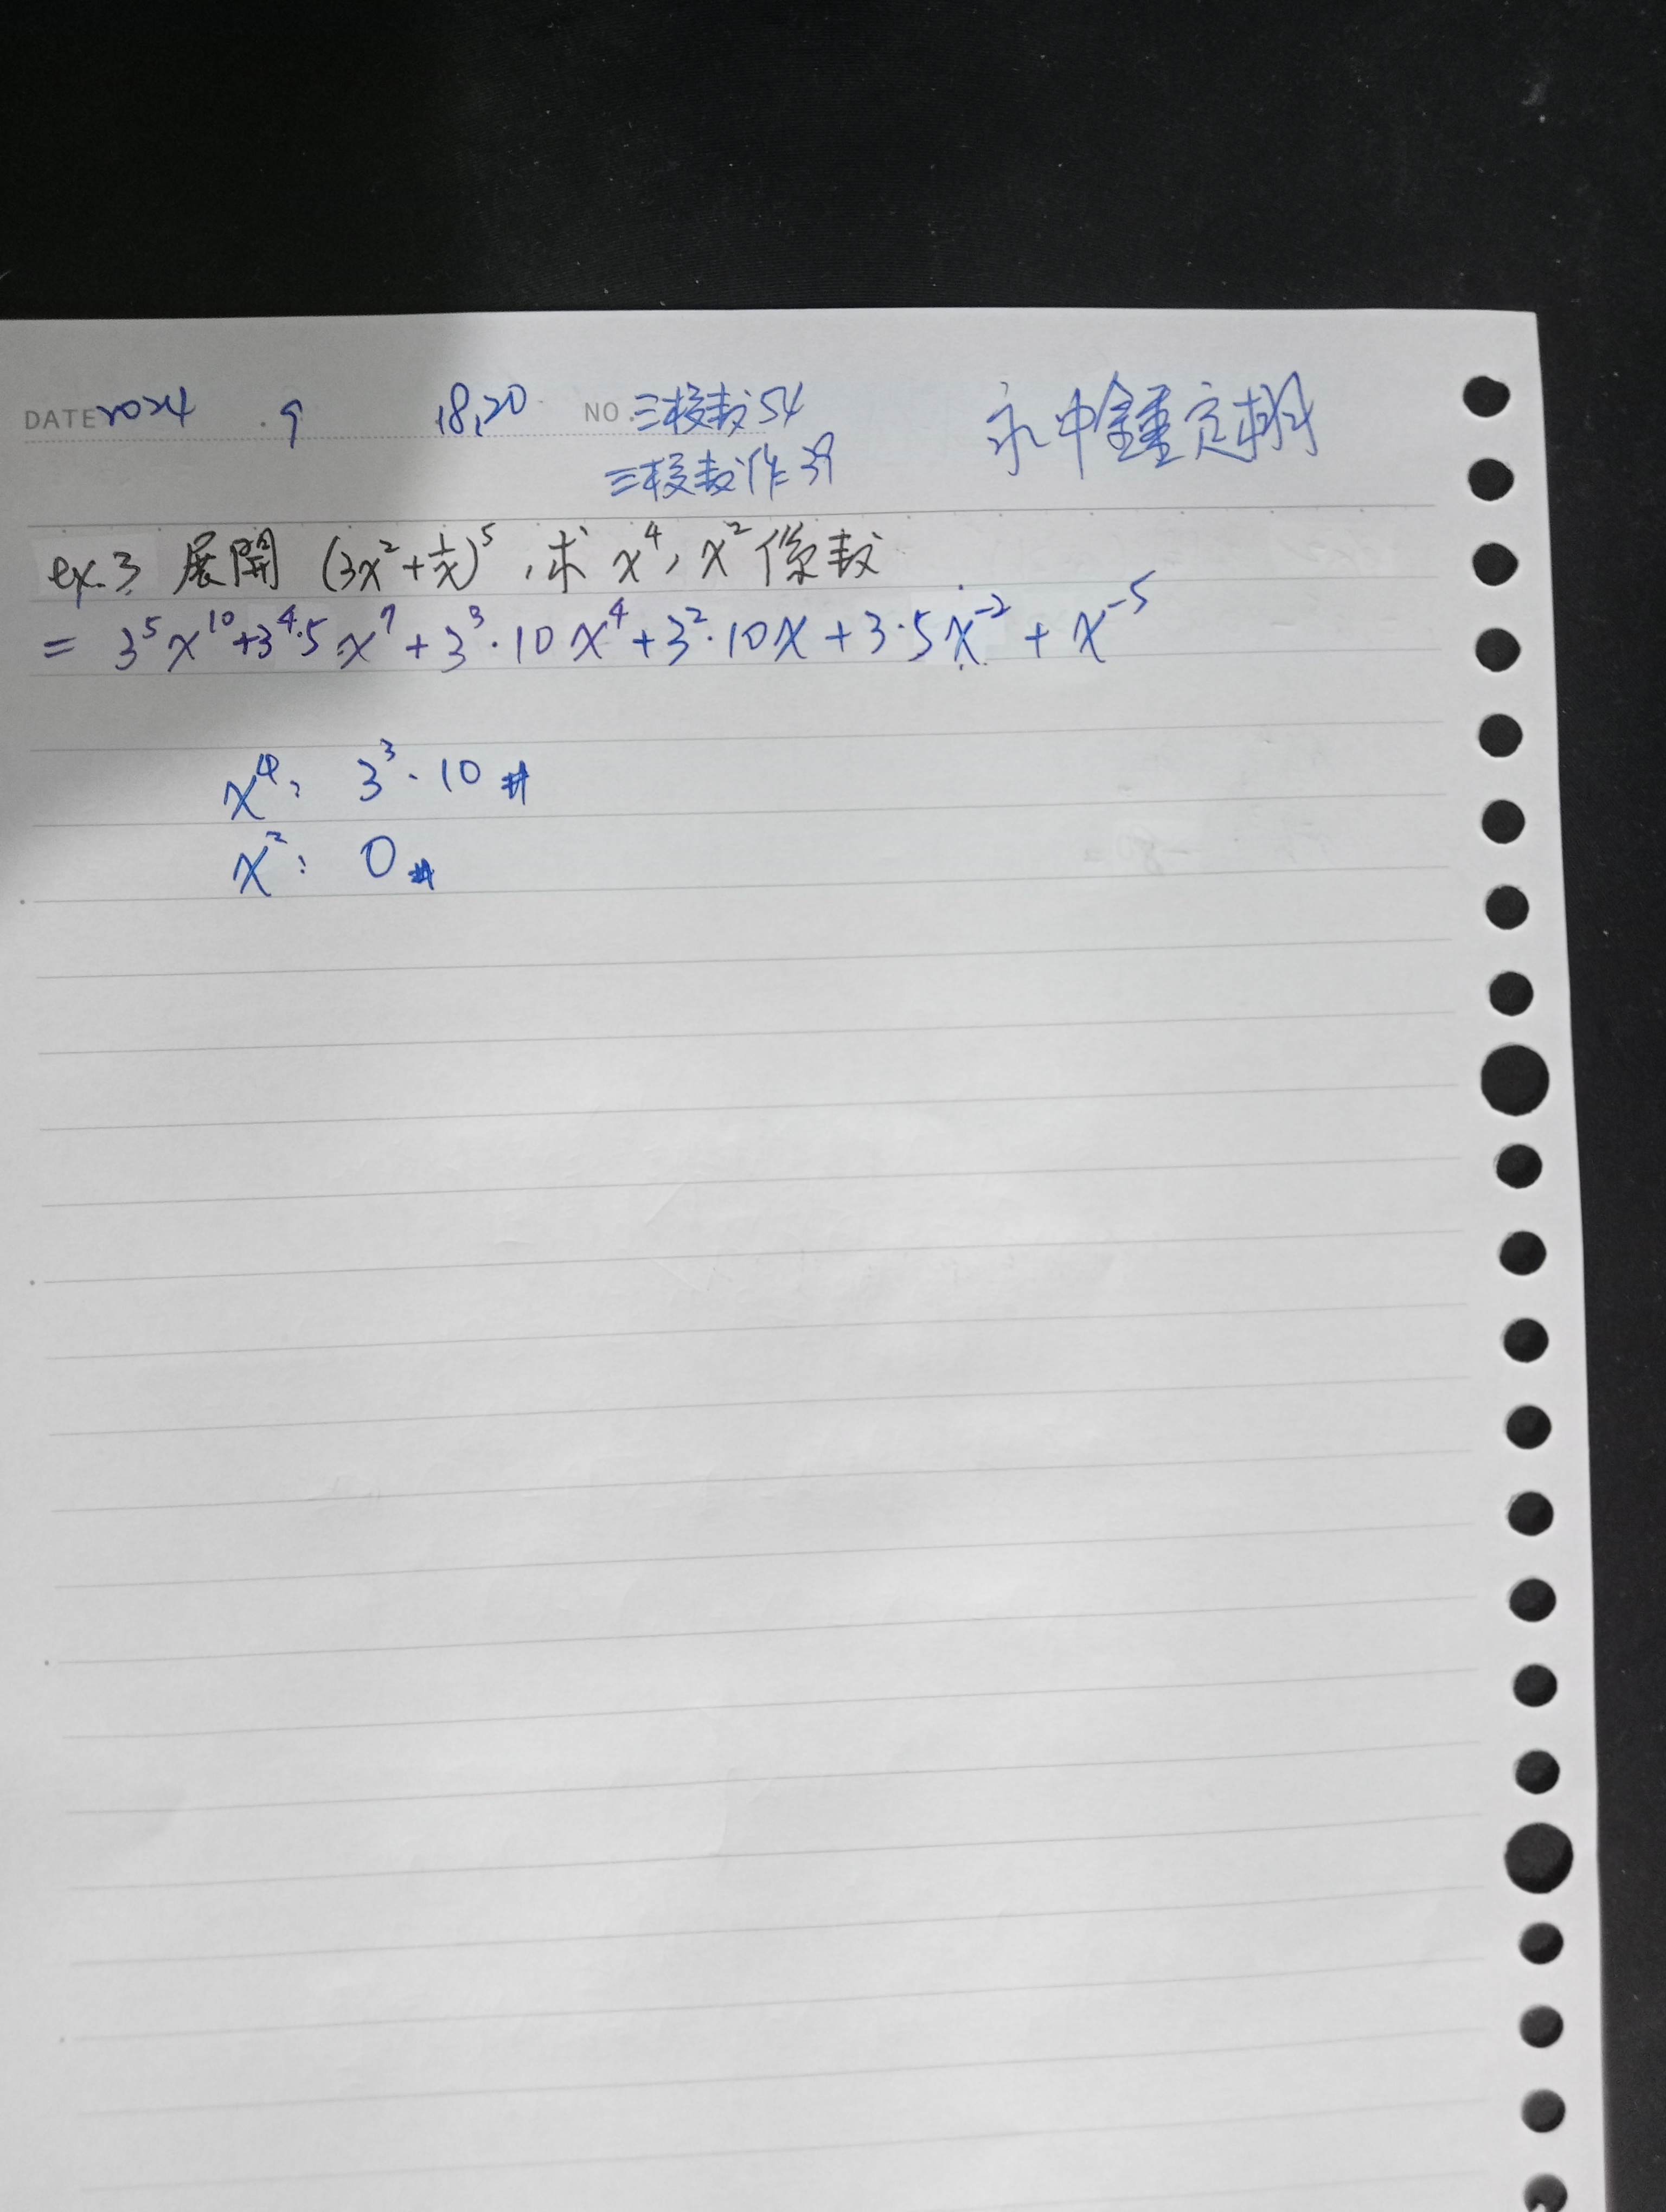 DATE 2024 . 9 18,20 NO. 三樓數54 永中鍾定樹
三樓數作39
ex.3 展開 (3x²+1/x)⁵, 求 x⁴, x² 係數
= 3⁵x¹⁰+3⁴·5x⁷+3³·10x⁴+3²·10x+3·5x⁻²+x⁻⁵
x⁴: 3³·10 #
x²: 0 #